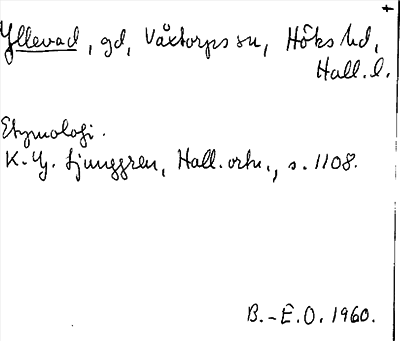 +
Yllevad, gd, Våxtorps sn, Höks hd,
Hall. l.
Etymologi.
K. G. Ljunggren, Hall. ortn., s. 1108.
B.-E.O. 1960.